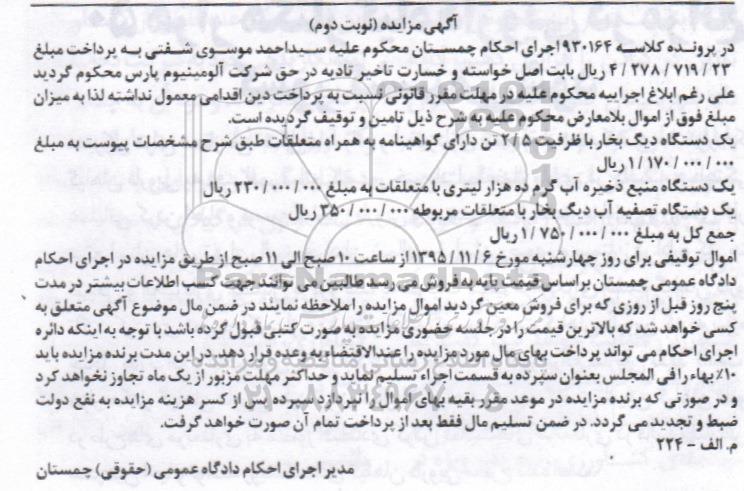 آگهی مزایده (نوبت دوم)
در پرونده کلاسه ۹۳۰۱۶۴ اجرای احکام چمستان محکوم علیه سیداحمد موسوی شفتی به پرداخت مبلغ
۴/۲۷۸/۷۱۹/۲۳ ریال بابت اصل خواسته و خسارت تاخیر تادیه در حق شرکت آلومینیوم پارس محکوم گردید
علی رغم ابلاغ اجراییه محکوم علیه در مهلت مقرر قانونی نسبت به پرداخت دین اقدامی معمول نداشته لذا به میزان
مبلغ فوق از اموال بلامعارض محکوم علیه به شرح ذیل تامین و توقیف گردیده است.
یک دستگاه دیگ بخار با ظرفیت ۲/۵ تن دارای گواهینامه به همراه متعلقات طبق شرح مشخصات پیوست به مبلغ
۱/۱۷۰/۰۰۰/۰۰۰ ریال
یک دستگاه منبع ذخیره آب گرم ده هزار لیتری با متعلقات به مبلغ ۲۳۰/۰۰۰/۰۰۰ ریال
یک دستگاه تصفیه آب دیگ بخار با متعلقات مربوطه ۳۵۰/۰۰۰/۰۰۰ ریال
جمع کل به مبلغ ۱/۷۵۰/۰۰۰/۰۰۰ ریال
اموال توقیفی برای روز چهارشنبه مورخ ۱۳۹۵/۱۱/۶ از ساعت ۱۰ صبح الی ۱۱ صبح از طریق مزایده در اجرای احکام
دادگاه عمومی چمستان براساس قیمت پایه به فروش می رسد طالبین می توانند جهت کسب اطلاعات بیشتر در مدت
پنج روز قبل از روزی که برای فروش معین گردید اموال مزایده را ملاحظه نمایند در ضمن مال موضوع آگهی متعلق به
کسی خواهد شد که بالاترین قیمت را در جلسه حضوری مزایده به صورت کتبی قبول کرده باشد با توجه به اینکه دائره
اجرای احکام می تواند پرداخت بهای مال مورد مزایده را عندالاقتضاء به وعده قرار دهد. در این مدت برنده مزایده باید
۱۰٪ بهاء را فی المجلس بعنوان سپرده به قسمت اجراء تسلیم نماید و حداکثر مهلت مزبور از یک ماه تجاوز نخواهد کرد
و در صورتی که برنده مزایده در موعد مقرر بقیه بهای اموال را نپردازد سپرده پس از کسر هزینه مزایده به نفع دولت
ضبط و تجدید می گردد. در ضمن تسلیم مال فقط بعد از پرداخت تمام آن صورت خواهد گرفت.
م. الف - ۲۲۴۰
مدیر اجرای احکام دادگاه عمومی (حقوقی) چمستان
ParsNamadData